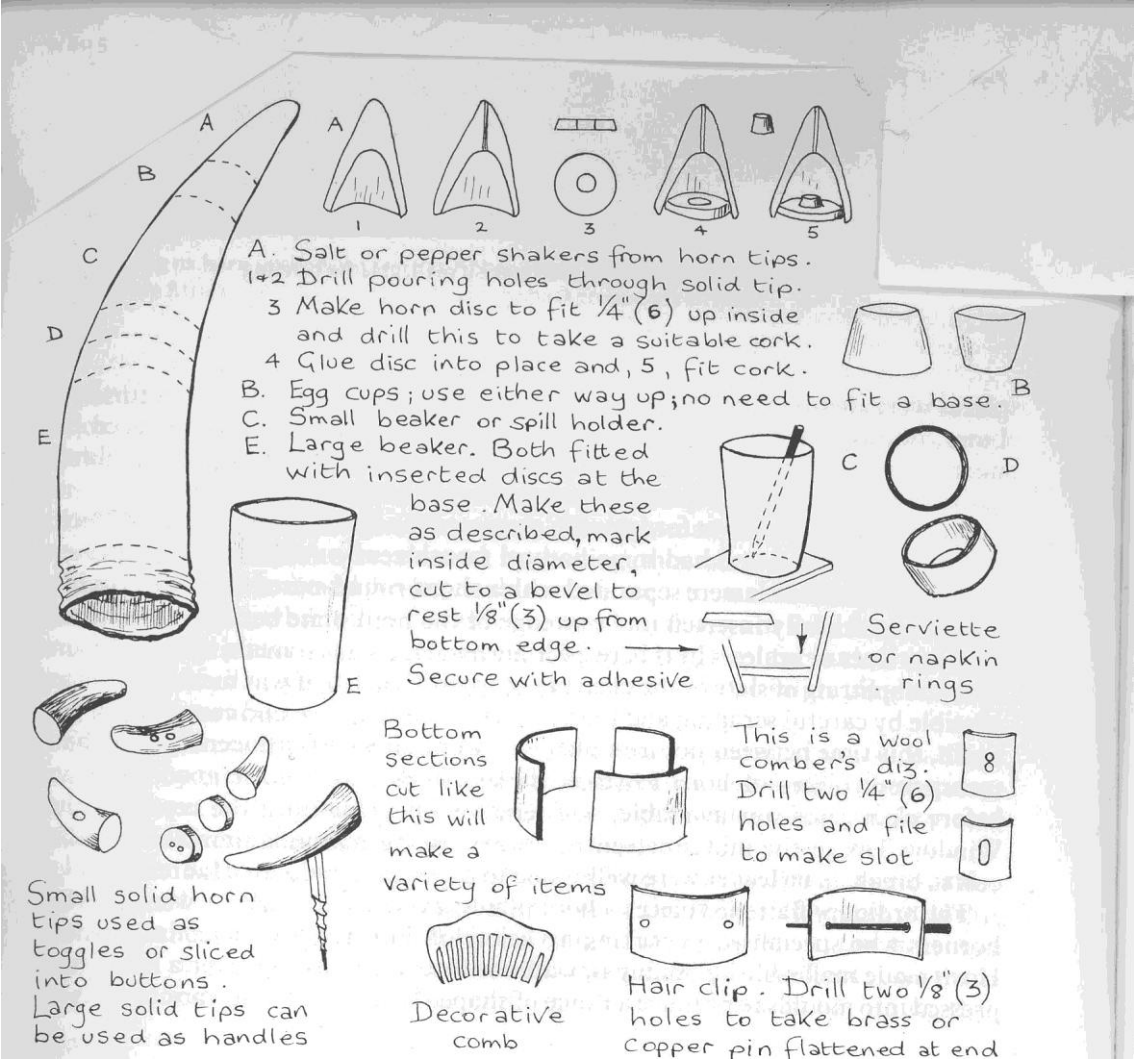 A
B
C
D
E
A
1
2
3
4
5
A. Salt or pepper shakers from horn tips.
1&2 Drill pouring holes through solid tip.
3 Make horn disc to fit 1/4" (6) up inside
and drill this to take a suitable cork.
4 Glue disc into place and, 5, fit cork.
B
B. Egg cups; use either way up; no need to fit a base.
C. Small beaker or spill holder.
E. Large beaker. Both fitted
with inserted discs at the
base. Make these
as described, mark
inside diameter,
cut to a bevel to
rest 1/8" (3) up from
bottom edge.
Secure with adhesive
E
C
D
Serviette
or napkin
rings
Bottom
sections
cut like
this will
make a
variety of items
This is a wool
comber's diz.
Drill two 1/4" (6)
holes and file
to make slot
Small solid horn
tips used as
toggles or sliced
into buttons.
Large solid tips can
be used as handles
Decorative
comb
Hair clip. Drill two 1/8" (3)
holes to take brass or
copper pin flattened at end